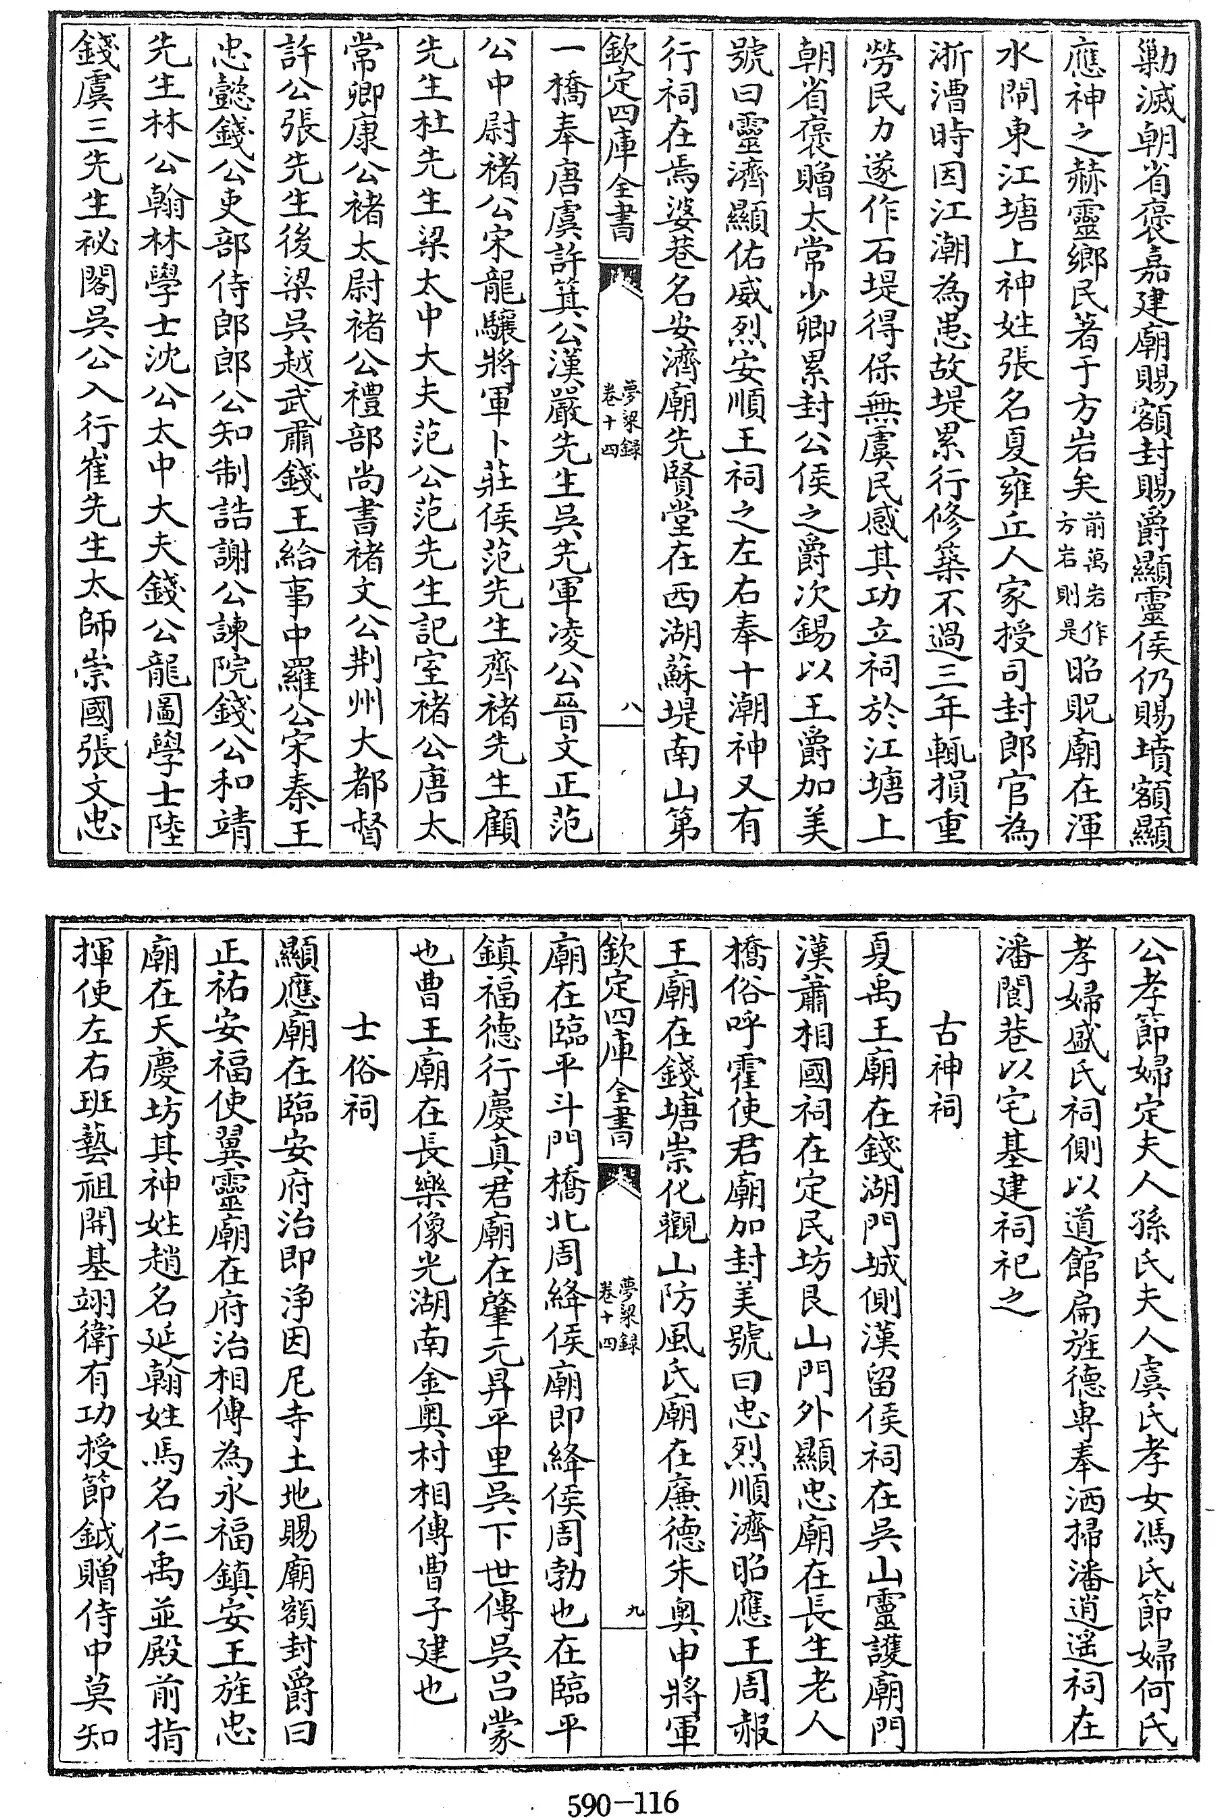 勦滅朝省褒嘉建廟賜額封賜爵顯靈侯仍賜墳額顯
應神之赫靈鄉民著于方岩矣前萬岩作方岩則是昭貺廟在渾
水閘東江塘上神姓張名夏雍丘人家授司封郎官為
浙漕時因江潮為患故堤累行修築不過三年輒損重
勞民力遂作石堤得保無虞民感其功立祠於江塘上
朝省褒贈太常少卿累封公侯之爵次錫以王爵加美
號曰靈濟顯佑威烈安順王祠之左右奉十潮神又有
行祠在焉婆巷名安濟廟先賢堂在西湖蘇堤南山第
欽定四庫全書
夢粱錄
卷十四
八
一橋奉唐虞許箕公漢嚴先生吳先軍凌公晉文正范
公中尉褚公宋龍驤將軍卜莊侯范先生齊褚先生顧
先生杜先生梁太中大夫范公范先生記室褚公唐太
常卿康公褚太尉褚公禮部尚書褚文公荆州大都督
許公張先生後梁吳越武肅錢王給事中羅公宋秦王
忠懿錢公吏部侍郎郎公知制誥謝公諫院錢公和靖
先生林公翰林學士沈公太中大夫錢公龍圖學士陸
錢虞三先生祕閣吳公入行崔先生太師崇國張文忠
公孝節婦定夫人孫氏夫人虞氏孝女馮氏節婦何氏
孝婦盛氏祠側以道館扁旌德專奉洒掃潘逍遥祠在
潘閬巷以宅基建祠祀之
古神祠
夏禹王廟在錢湖門城側漢留侯祠在吳山靈護廟門
漢蕭相國祠在定民坊艮山門外顯忠廟在長生老人
橋俗呼霍使君廟加封美號曰忠烈順濟昭應王周赧
王廟在錢塘崇化觀山防風氏廟在廉德朱奥申將軍
欽定四庫全書
夢粱錄
卷十四
九
廟在臨平斗門橋北周絳侯廟即絳侯周勃也在臨平
鎮福德行慶真君廟在肇元昇平里吳下世傳吳吕蒙
也曹王廟在長樂像光湖南金奥村相傳曹子建也
士俗祠
顯應廟在臨安府治即浄因尼寺土地賜廟額封爵曰
正祐安福使翼靈廟在府治相傳為永福鎮安王旌忠
廟在天慶坊其神姓趙名延翰姓馬名仁禹並殿前指
揮使左右班藝祖開基翊衛有功授節鉞贈侍中莫知
590-116